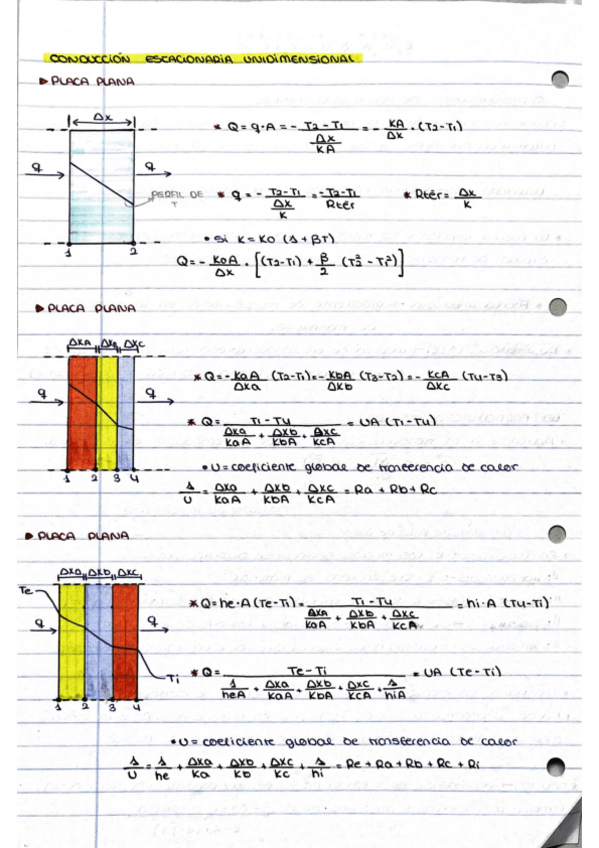 CONDUCCIÓN ESTACIONARIA UNIDIMENSIONAL
▶ PLACA PLANA
Δx
q q
PERFIL DE T
1 2
* Q = q·A = - (T2-T1)/(Δx/KA) = - KA/Δx · (T2-T1)
* q = - (T2-T1)/(Δx/K) = -T2-T1/Rtér * Rtér = Δx/K
• Si K = K0 (1+βT)
Q = - K0A/Δx · [(T2-T1) + β/2 (T2² - T1²)]
▶ PLACA PLANA
ΔxA ΔxB ΔxC
q q
1 2 3 4
* Q = - KaA/Δxa (T2-T1) = - KbA/Δxb (T3-T2) = - KcA/Δxc (T4-T3)
* Q = (T1-T4)/(Δxa/KaA + Δxb/KbA + Δxc/KcA) = UA (T1-T4)
• U = coeficiente global de transferencia de calor
1/U = Δxa/KaA + Δxb/KbA + Δxc/KcA = Ra + Rb + Rc
▶ PLACA PLANA
Δxa Δxb Δxc
Te
q q
Ti
1 2 3 4
* Q = he·A (Te-T1) = (T1-T4)/(Δxa/KaA + Δxb/KbA + Δxc/KcA) = hi·A (T4-Ti)
* Q = (Te-Ti)/(1/heA + Δxa/KaA + Δxb/KbA + Δxc/KcA + 1/hiA) = UA (Te-Ti)
• U = coeficiente global de transferencia de calor
1/U = 1/he + Δxa/Ka + Δxb/Kb + Δxc/Kc + 1/hi = Re + Ra + Rb + Rc + Ri